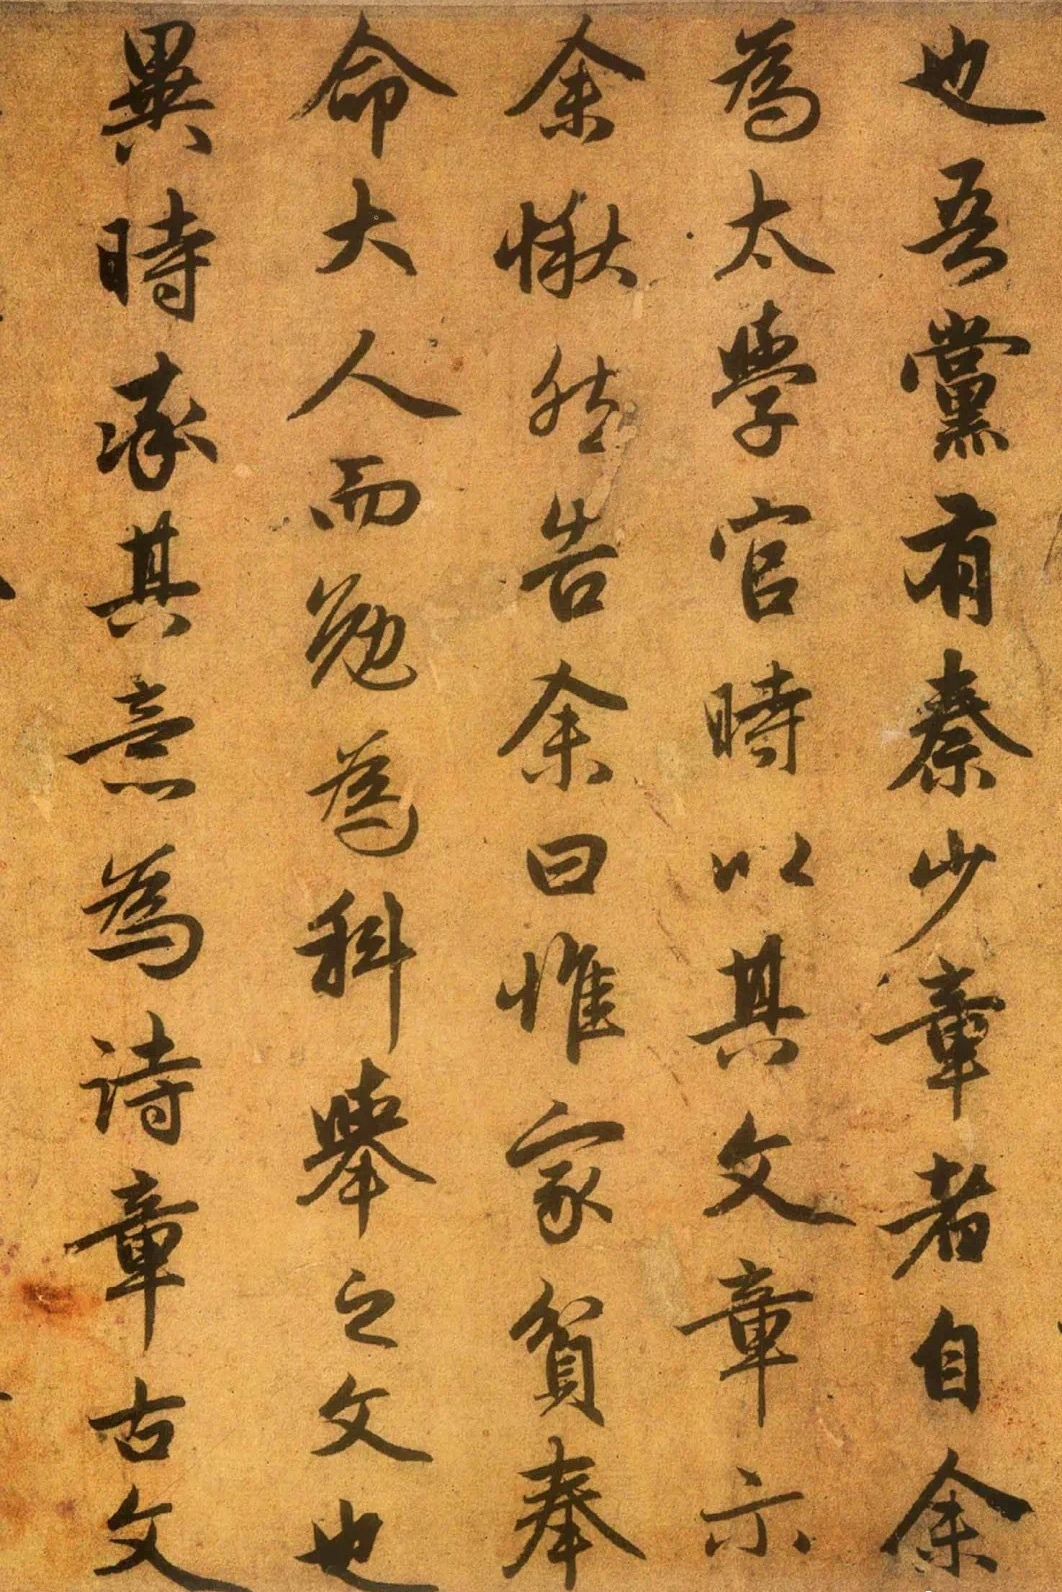 也吾黨有秦少章者自余
為太學官時以其文章示
余愀然告余曰惟家貧奉
命大人而勉為科舉之文也
異時率其意為詩章古文